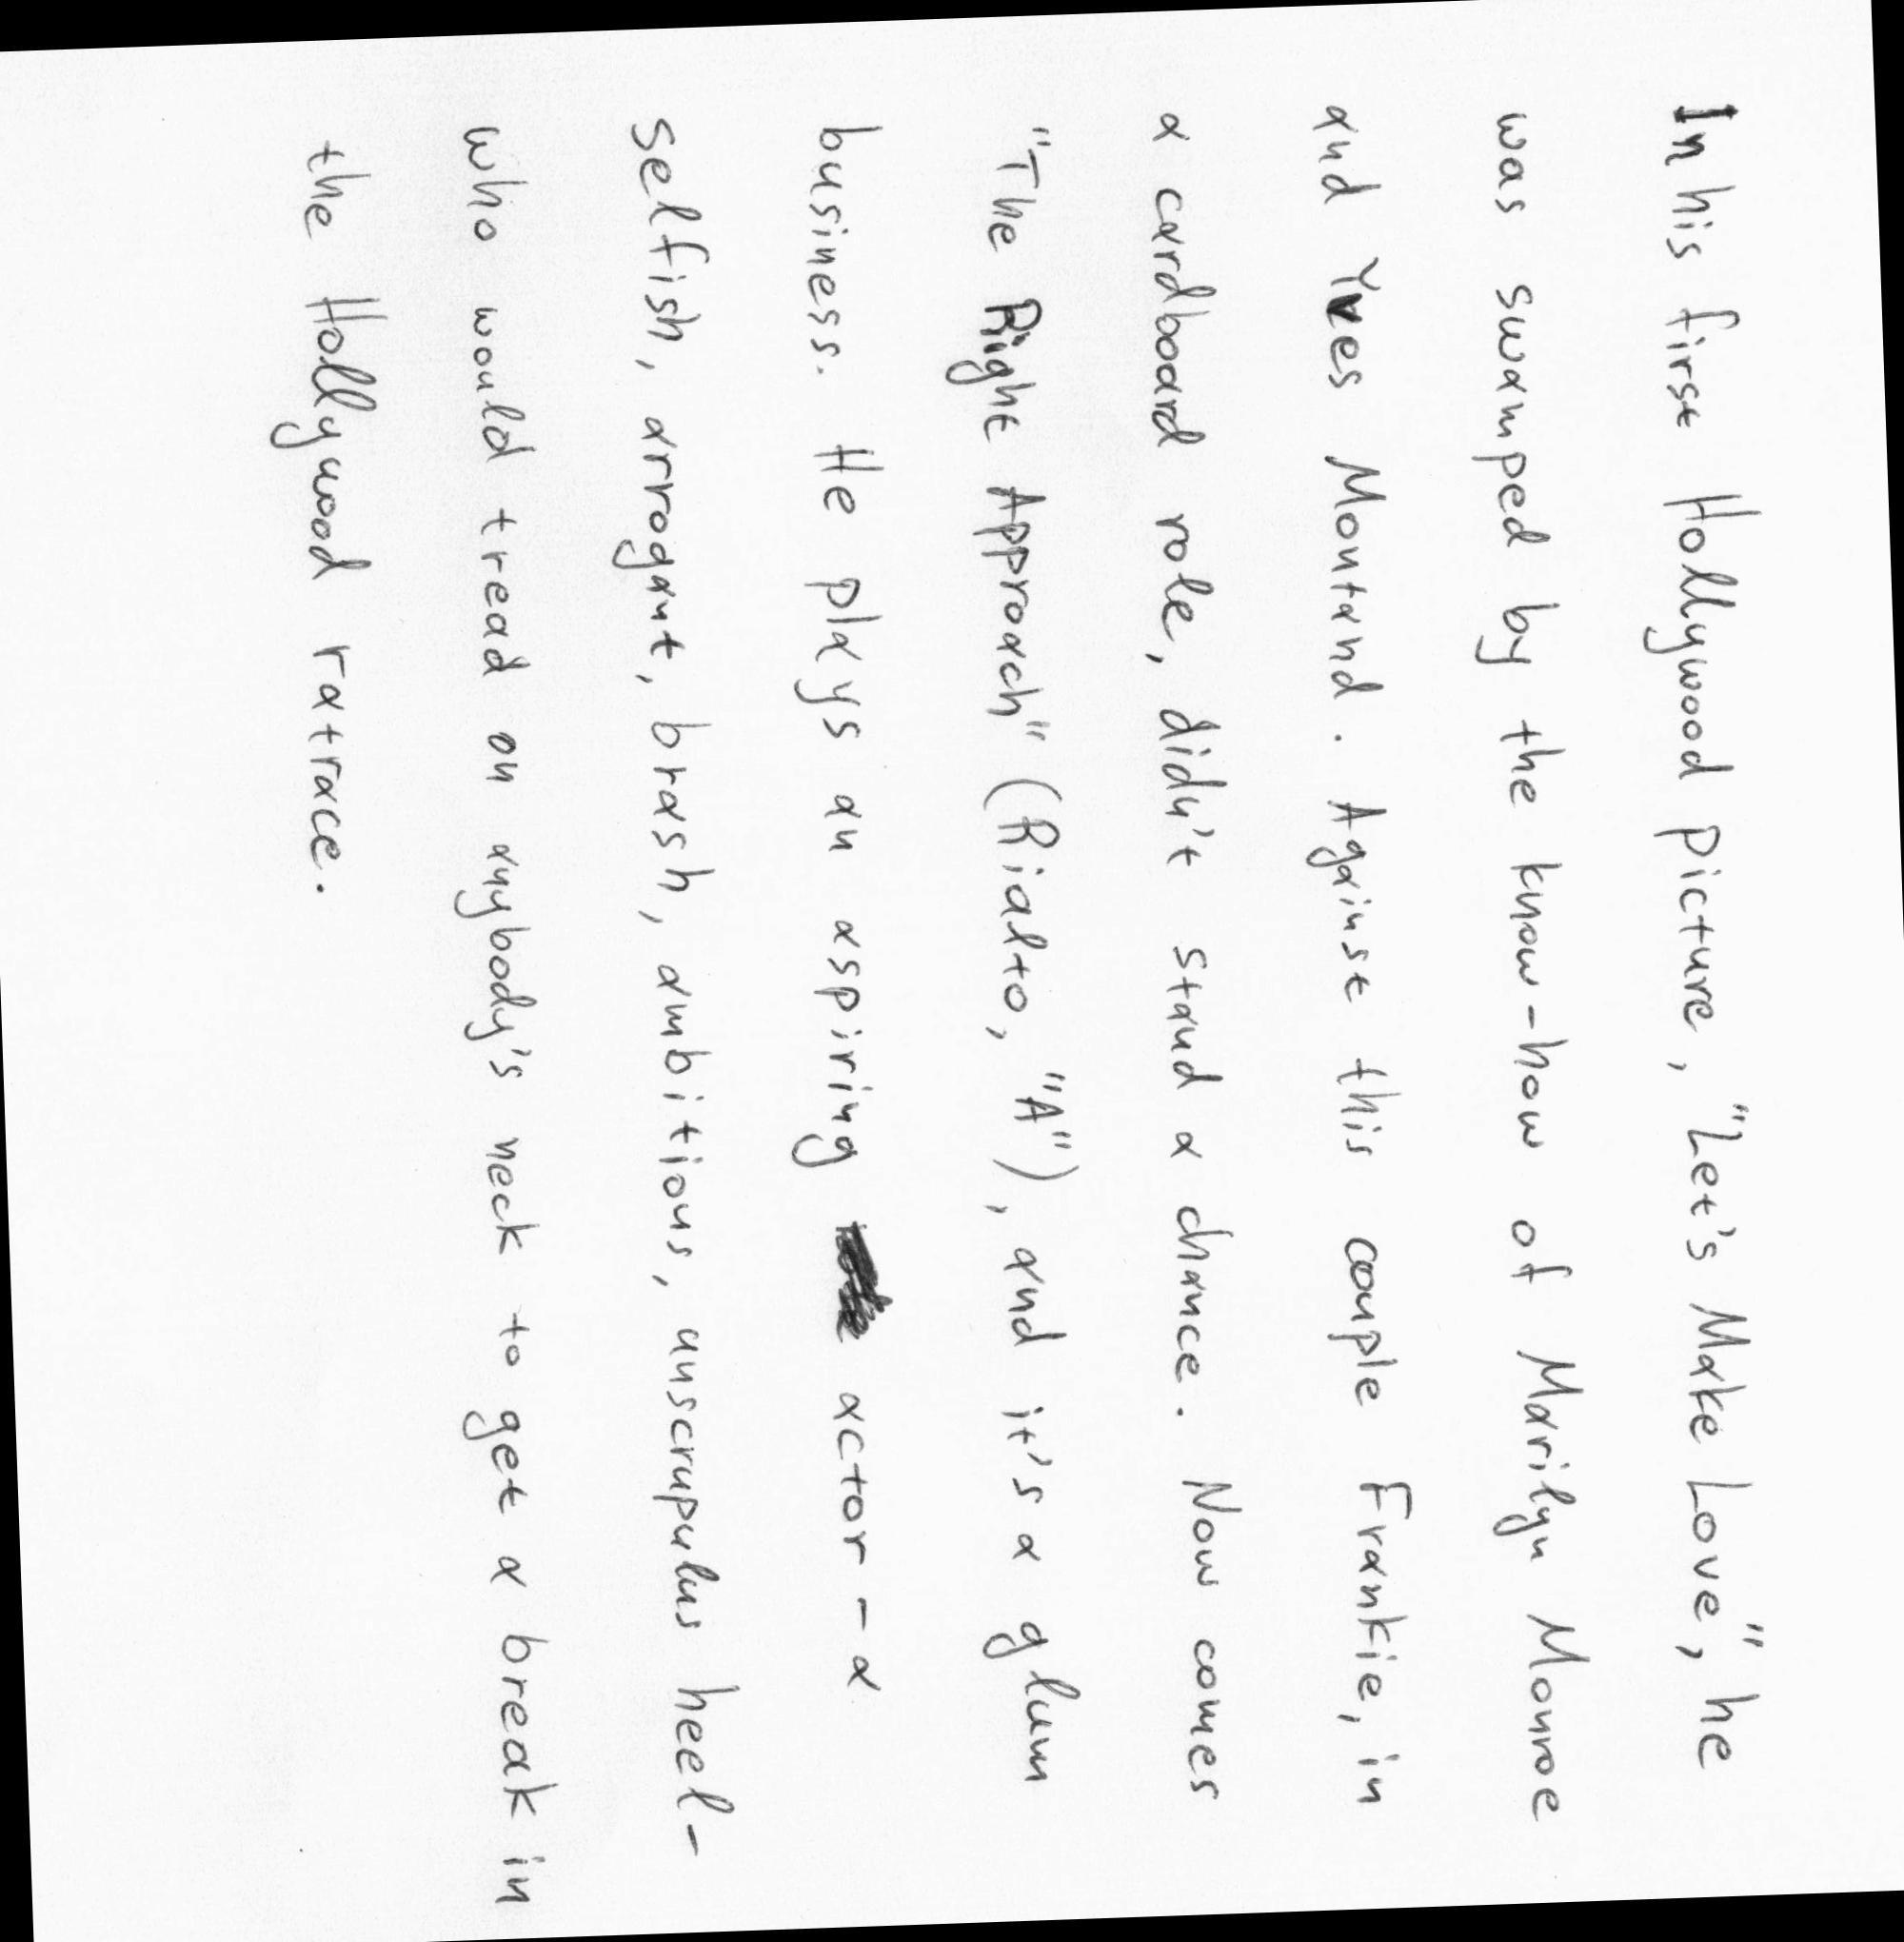 In his first Hollywood picture, "Let's Make Love", he
was swamped by the know-how of Marilyn Monroe
and Yves Montand. Against this couple Frankie, in
a cardboard role, didn't stand a chance. Now comes
"The Right Approach" (Rialto, "A"), and it's a glum
business. He plays an aspiring actor - a
selfish, arrogant, brash, ambitious, unscrupulus heel -
who would tread on anybody's neck to get a break in
the Hollywood ratrace.